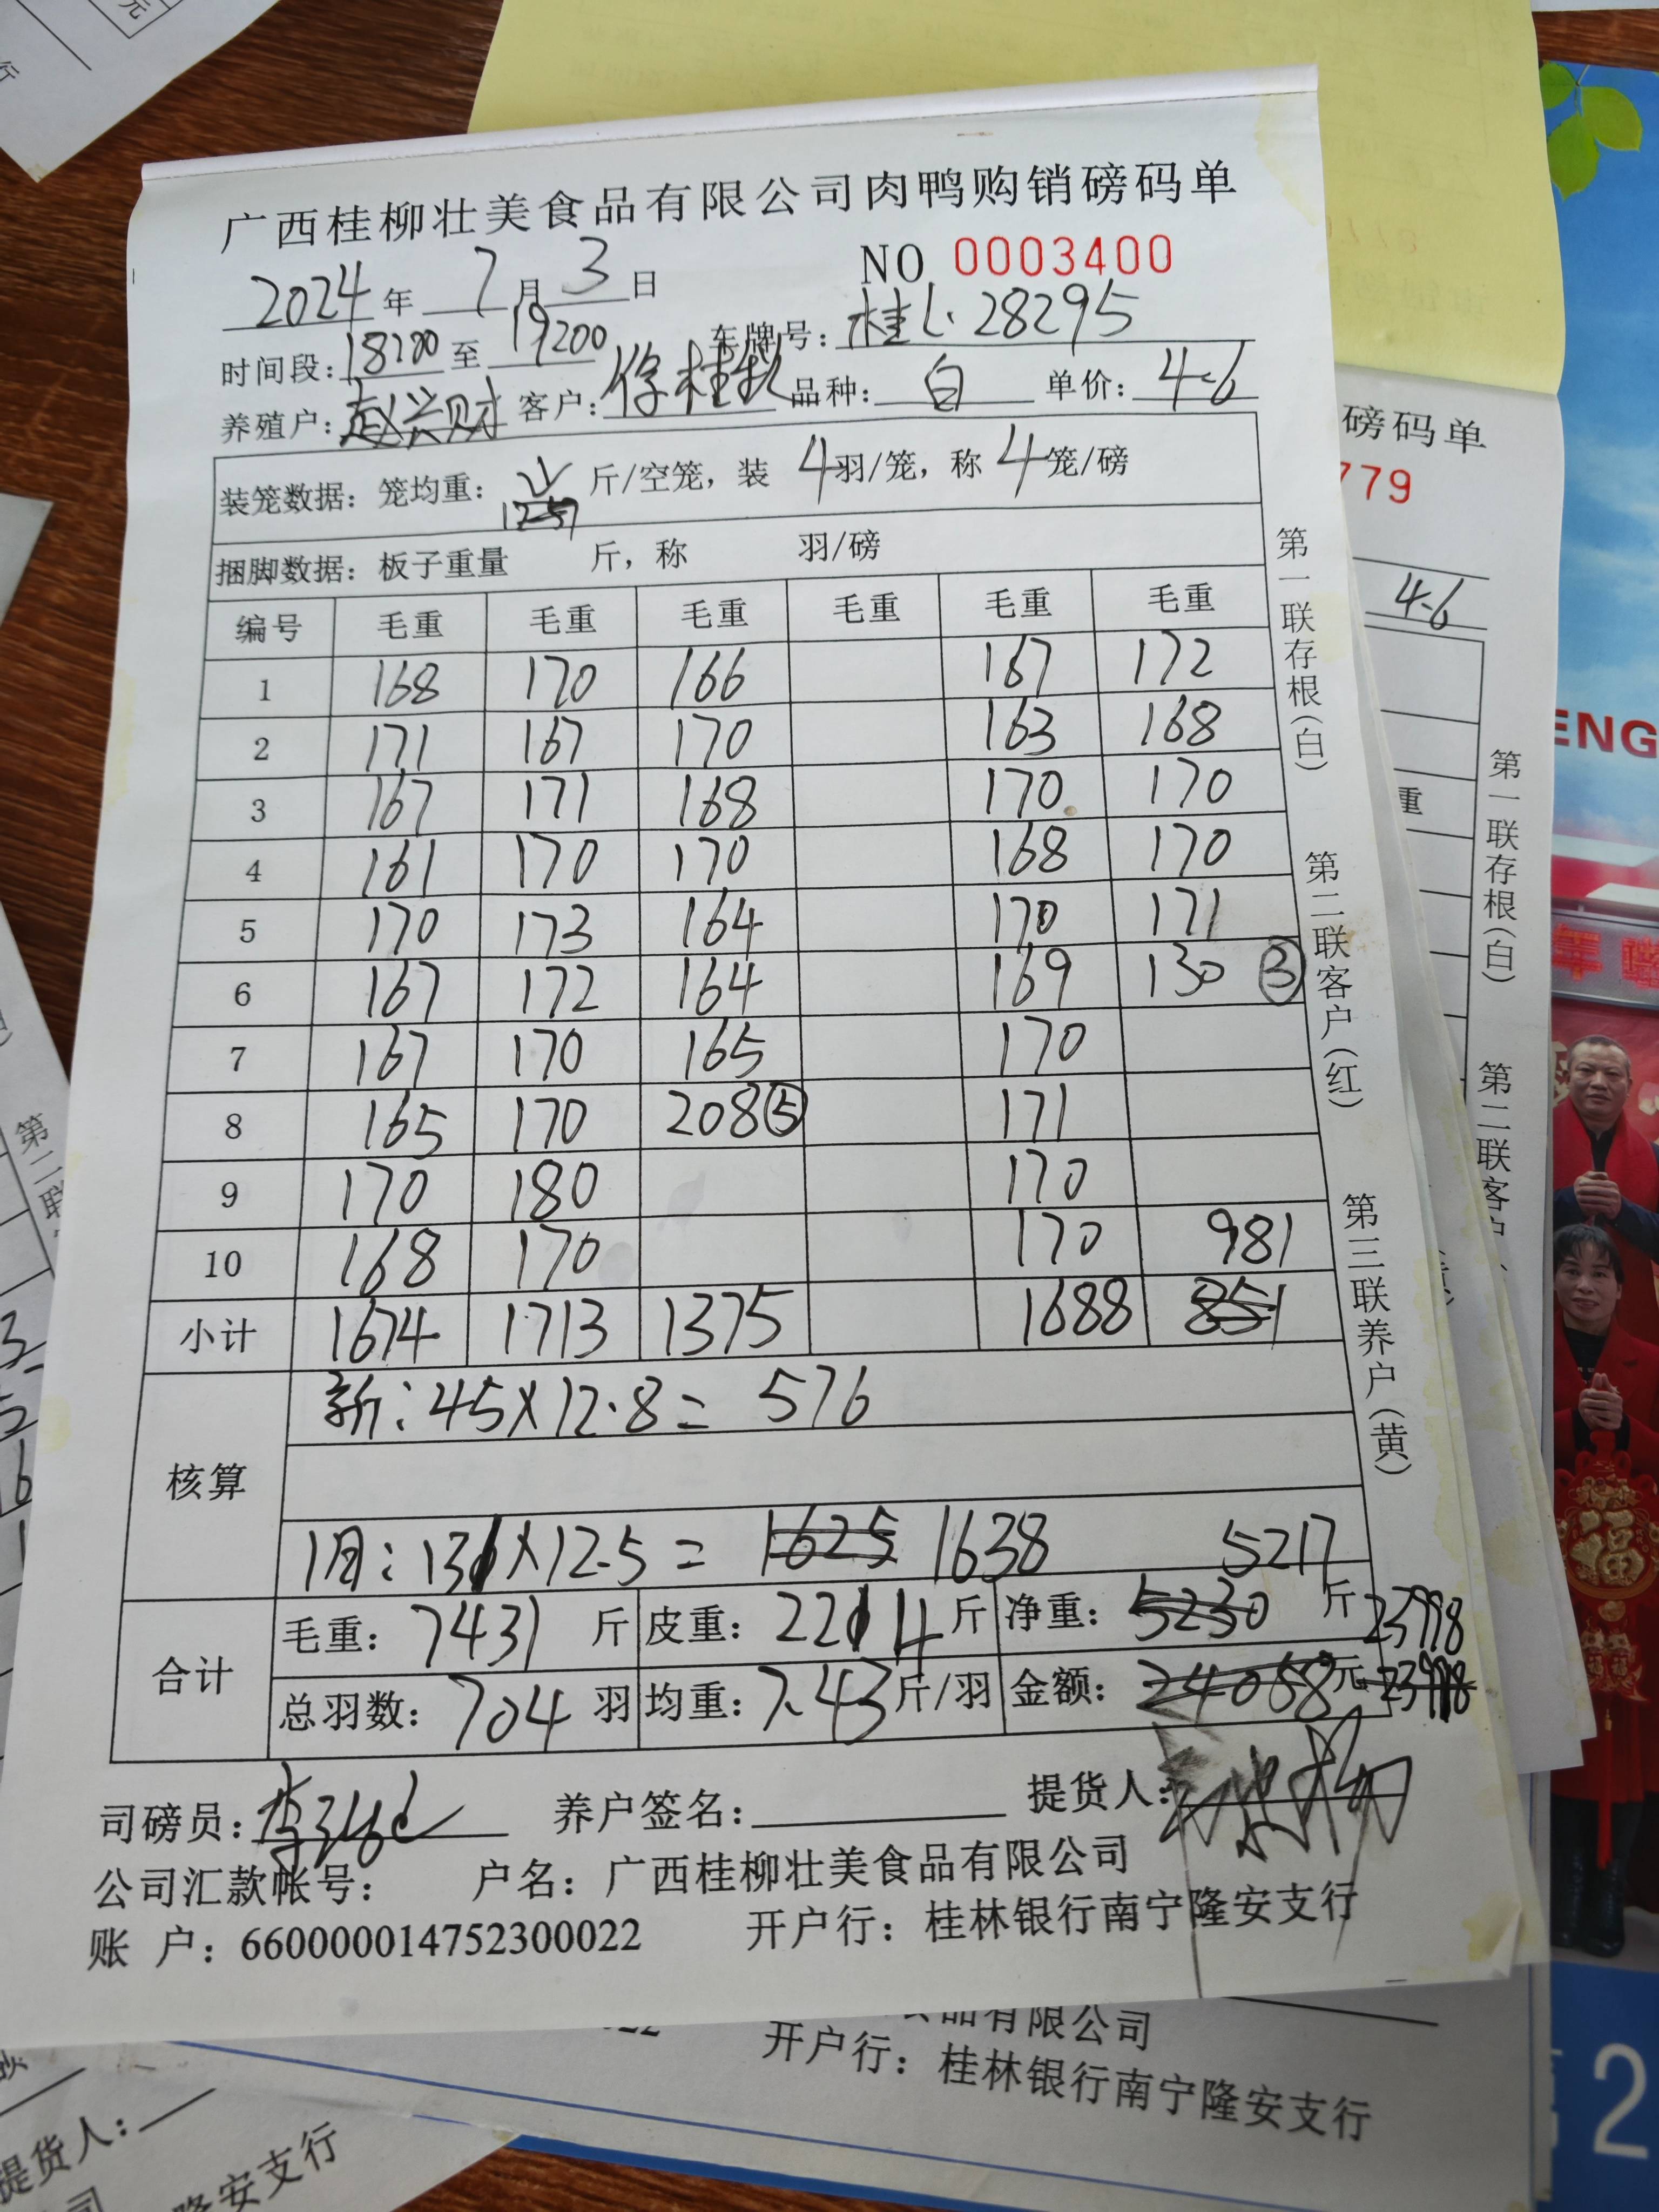 广西桂柳壮美食品有限公司肉鸭购销磅码单
2024年 7月 3日 NO 0003400
时间段: 18:00 至 19:00 车牌号: 桂L·28295
养殖户: 赵兴财 客户: 品种: 白 单价: 4.6
装笼数据: 笼均重: 斤/空笼, 装 4羽/笼, 称 4笼/磅
捆脚数据: 板子重量 斤, 称 羽/磅
编号 毛重 毛重 毛重 毛重 毛重 毛重
1 168 170 166 167 172
2 171 167 170 163 168
3 167 171 168 170 170
4 161 170 170 168 170
5 170 173 164 170 171
6 167 172 164 169 130 ③
7 167 170 165 170
8 165 170 208⑤ 171
9 170 180 170
10 168 170 170 981
小计 1674 1713 1375 1688 851
核算
新: 45×12.8= 576
旧: 131×12.5= 1625 1638 5217
合计
毛重: 7431 斤 皮重: 2214 斤 净重: 5230 斤 23998
总羽数: 704 羽 均重: 7.43 斤/羽 金额: 24058 元 23998
司磅员: 养户签名: 提货人:
公司汇款帐号: 户名: 广西桂柳壮美食品有限公司
账 户: 660000014752300022 开户行: 桂林银行南宁隆安支行
第一联存根(白)
第二联客户(红)
第三联养户(黄)
磅码单
779
4.6
重
第一联存根(白)
第二联客户
ENG
福
品有限公司
开户行: 桂林银行南宁隆安支行
提货人:
隆安支行
2